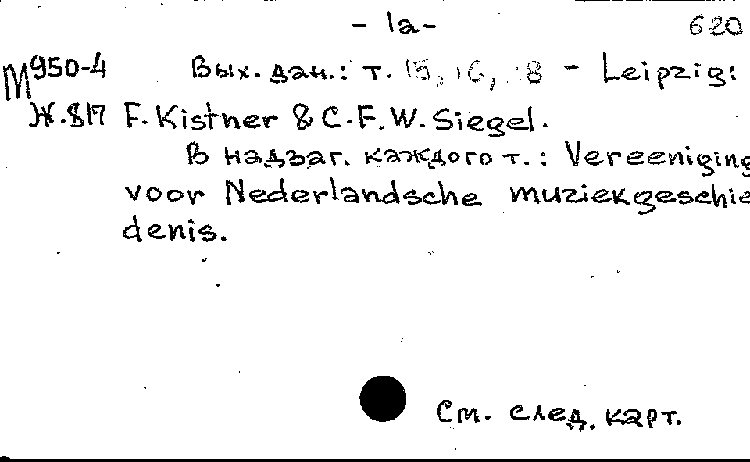 - 1a- 620
М950-4 Вых. дан.: т. 15, 16, 18 - Leipzig:
Ж.817 F. Kistner & C.F.W. Siegel.
В надзаг. каждого т.: Vereeniging
voor Nederlandsche muziekgeschie
denis.
См. след. карт.